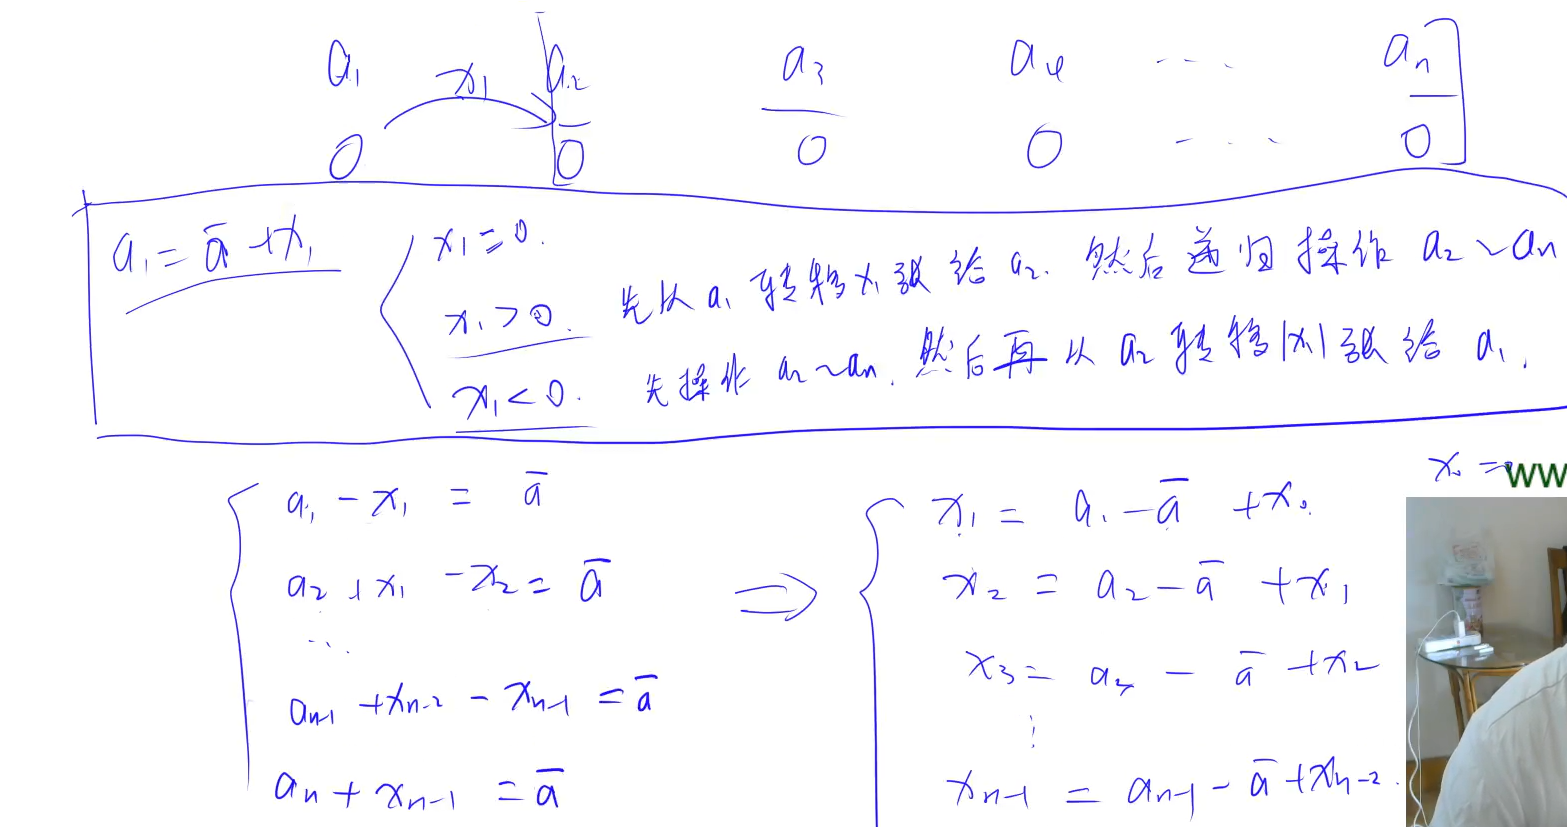 a₁ x₁ a₂ a₃ a₄ ... aₙ
0 0 0 0 ... 0
a₁ = ā + x₁
x₁ = 0.
x₁ > 0. 先从 a₁ 转移 x₁ 张给 a₂. 然后递归操作 a₂ ~ aₙ
x₁ < 0. 先操作 a₂ ~ aₙ. 然后再从 a₂ 转移 |x₁| 张给 a₁.
a₁ - x₁ = ā
a₂ + x₁ - x₂ = ā
...
aₙ₋₁ + xₙ₋₂ - xₙ₋₁ = ā
aₙ + xₙ₋₁ = ā
⇒
x₀ = WW
x₁ = a₁ - ā + x₀
x₂ = a₂ - ā + x₁
x₃ = a₃ - ā + x₂
⋮
xₙ₋₁ = aₙ₋₁ - ā + xₙ₋₂.